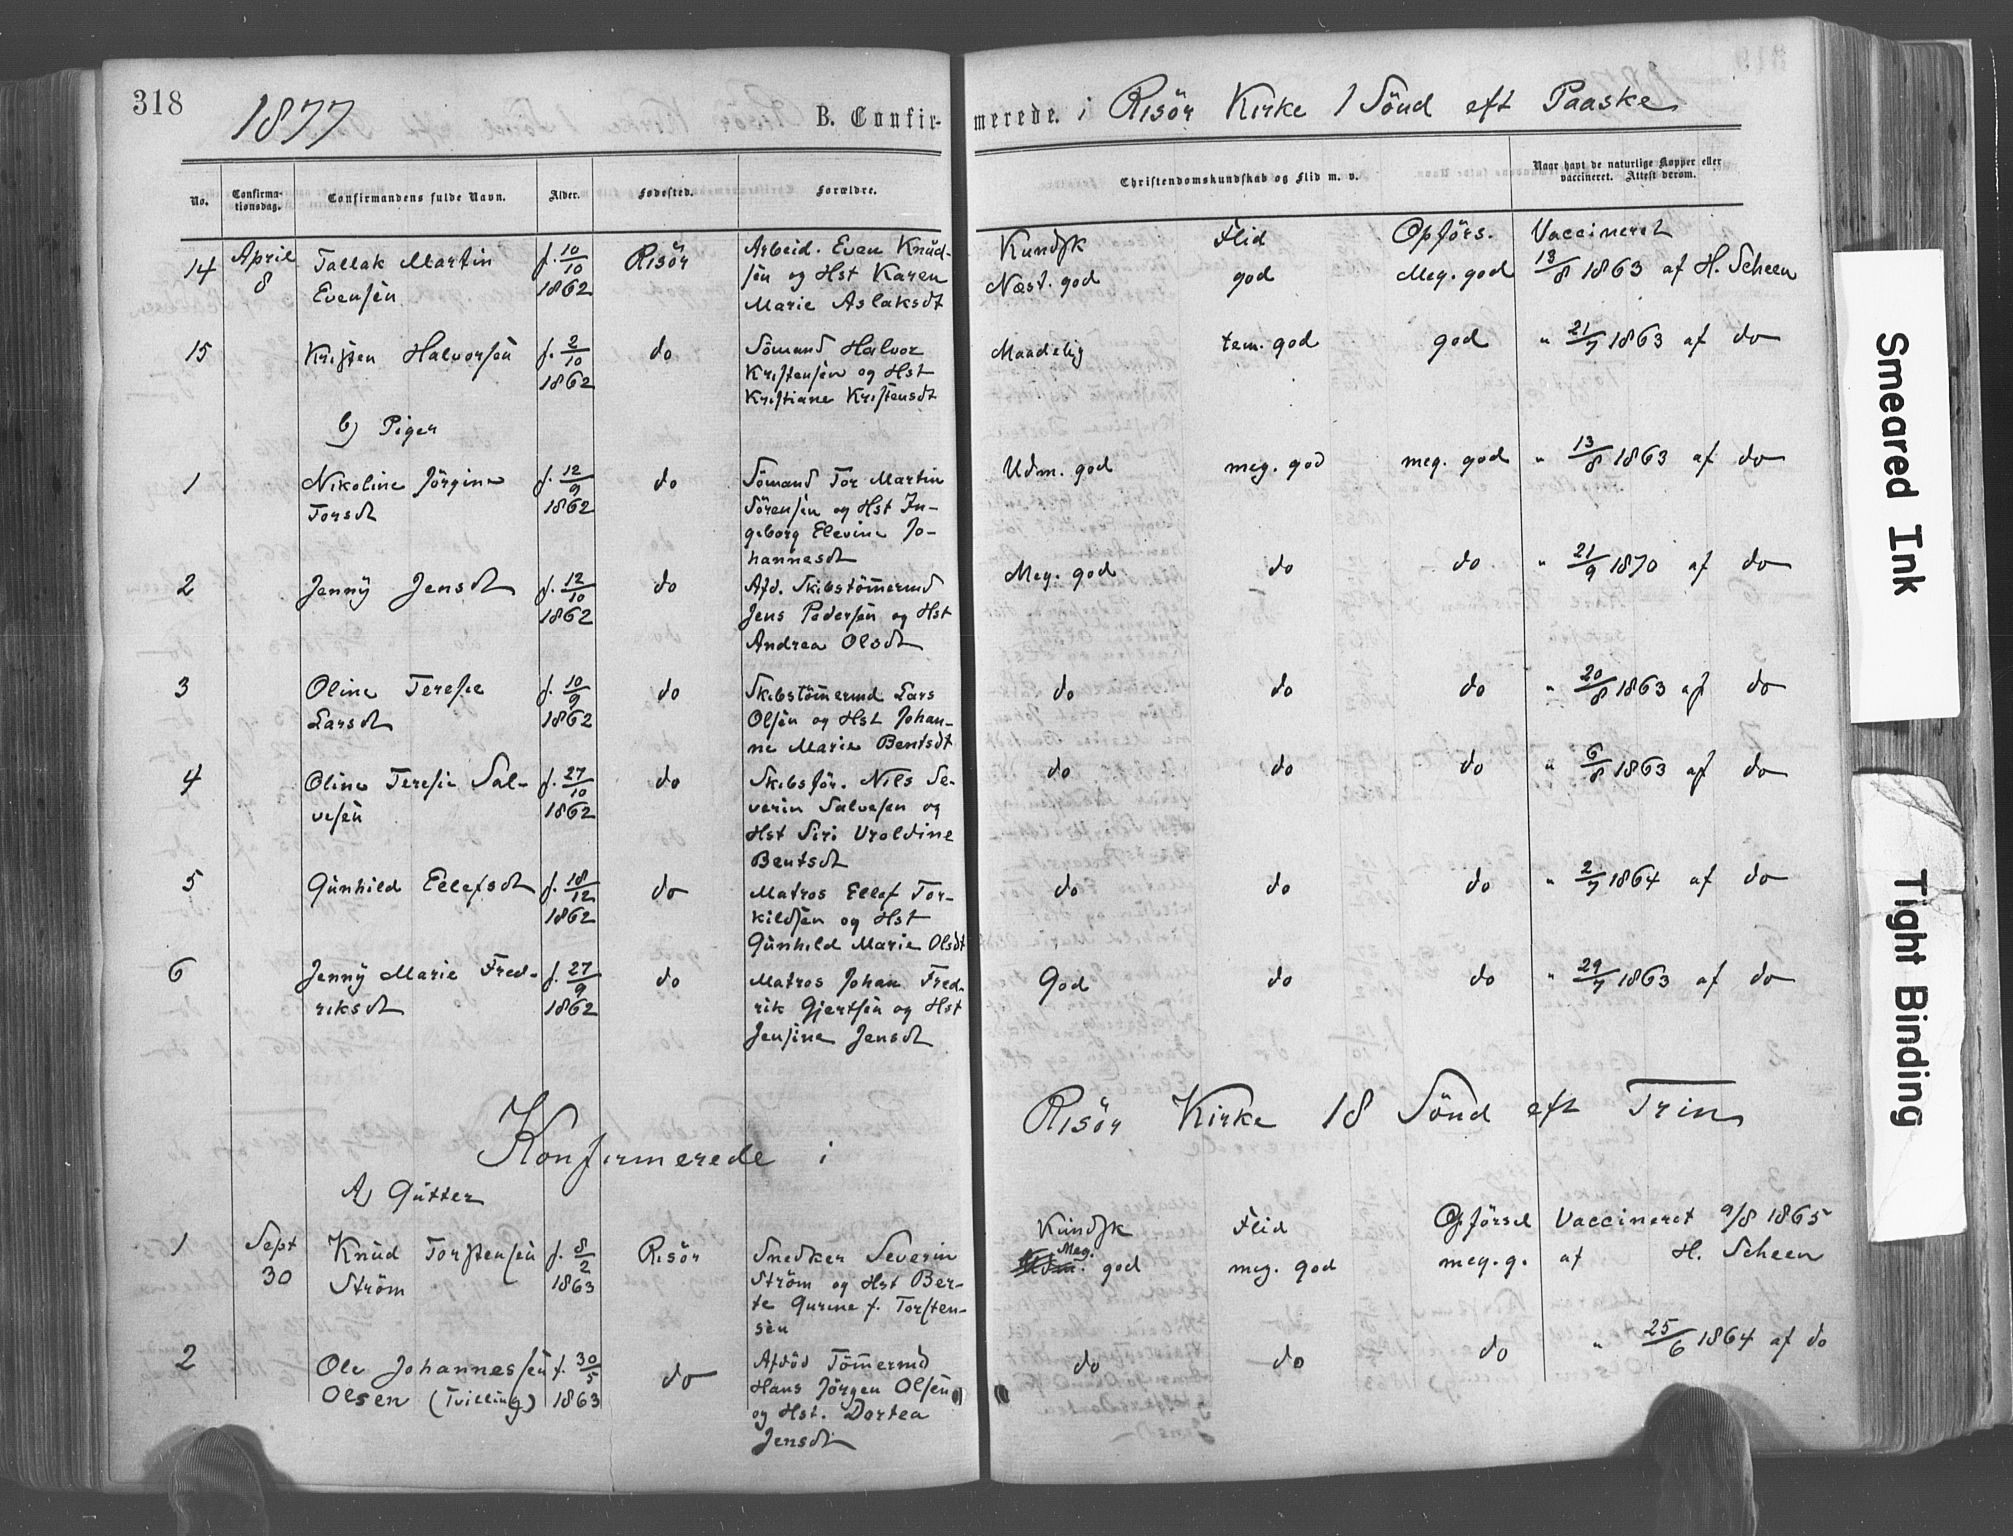 318
1877
B. Confir-
merede. i Risör Kirke 1 Sönd eft Paaske
No.
Confirma-
tionsdag.
Confirmandens fulde Navn.
Alder.
Fødested.
Forældre.
Christendomskundskab og Flid m. v.
Naar havt de naturlige Kopper eller
vaccineret. Attest derom.
Kundsk Flid Opförs. Vaccineret
14 April 8 Tallak Martin Evensen f. 10/10 1862 Risör Arbeid. Even Knud-
sen og Hst Karen
Marie Aslaksdt
Næst. god god Meg. god 13/8 1863 af H. Scheen
15 Kristen Halvorsen f. 2/10 1862 do Sömand Halvor
Kristensen og Hst
Kristiane Kristensdt
Maadelig tem. god god " 21/7 1863 af do
b) Piger
1 Nikoline Jörgine Torsdt f. 12/9 1862 do Sömand Tor Martin
Sörensen og Hst In-
geborg Elevine Jo-
hannesdt
Udm. god meg. god meg. god " 13/8 1863 af do
2 Jenny Jensdt f. 12/10 1862 do Afd. Skibstömermd
Jens Pedersen og Hst
Andrea Olsdt
Meg. god do do " 21/9 1870 af do
3 Oline Teresie Larsdt f. 10/9 1862 do Skibstömermd Lars
Olsen og Hst Johan-
ne Marie Bentsdt
do do do " 20/8 1863 af do
4 Oline Teresie Sal-
vesen f. 27/10 1862 do Skibsför. Nils Se-
verin Salvesen og
Hst Siri Uroldine
Bentsdt
do do do " 6/8 1863 af do
5 Gunhild Ellefsdt f. 18/12 1862 do Matros Ellef Tor-
kildsen og Hst
Gunhild Marie Olsdt
do do do " 2/7 1864 af do
6 Jenny Marie Fred-
riksdt f. 27/9 1862 do Matros Johan Fred-
rik Gjertsen og Hst
Jensine Jensdt
God do do " 29/7 1863 af do
Konfirmerede i
Risör Kirke 18 Sönd eft Trin
A) Gutter
Kundsk Flid Opförsel Vaccineret 9/8 1865
1 Sept 30 Knud Torstensen
Ström f. 8/2 1863 Risör Snedker Severin
Ström og Hst Ber-
te Gurine f. Torsten-
sen
Meg. god meg. god meg. g. af H. Scheen
2 Ole Johannessen
Olsen (Tvilling) f. 30/5 1863 do Afdöd Tömermd
Hans Jörgen Olsen
og Hst. Dortea
Jensdt
do do do " 25/6 1864 af do
Smeared Ink
Tight Binding